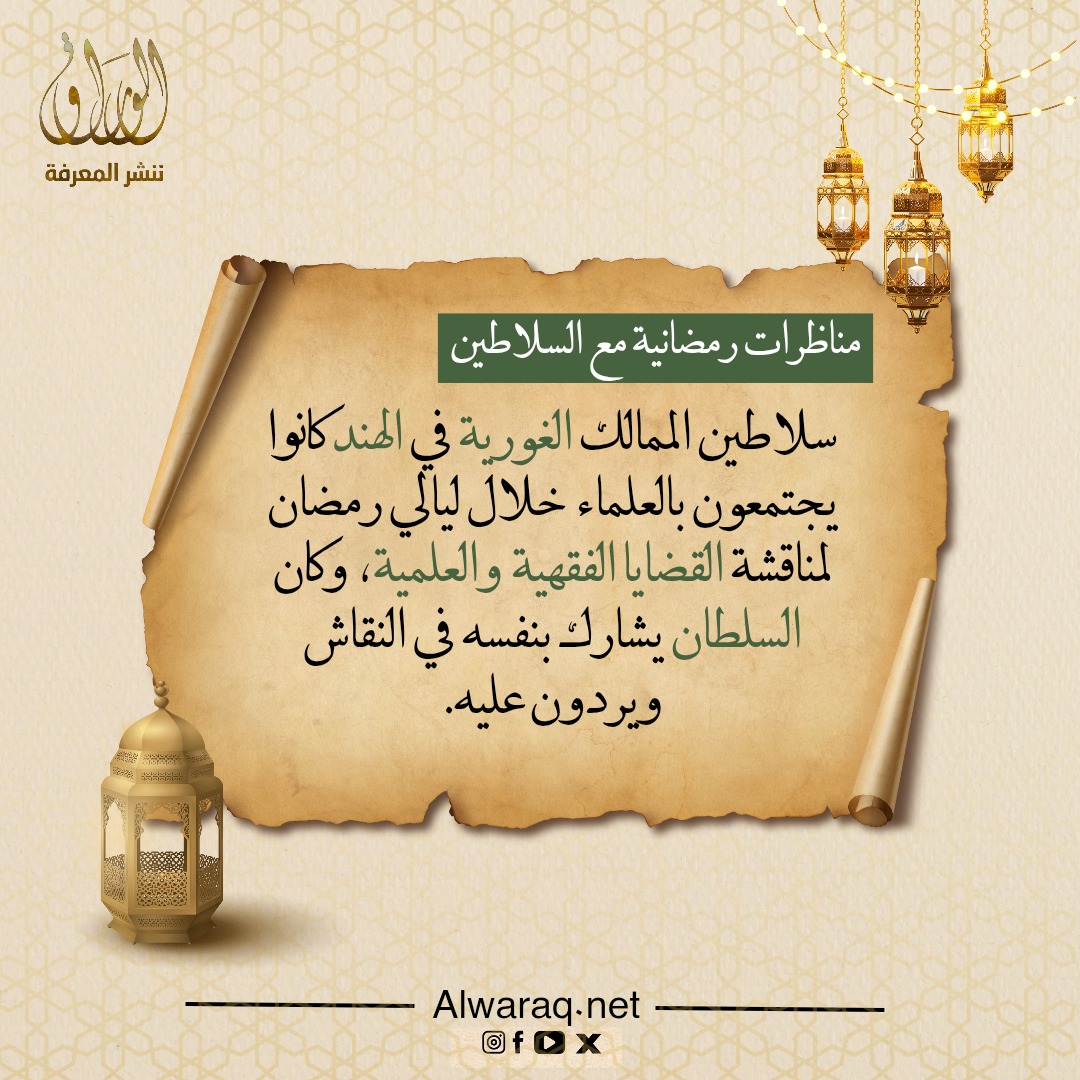 الوراق
ننشر المعرفة
مناظرات رمضانية مع السلاطين
سلاطين الممالك الغورية في الهند كانوا
يجتمعون بالعلماء خلال ليالي رمضان
لمناقشة القضايا الفقهية والعلمية، وكان
السلطان يشارك بنفسه في النقاش
ويردون عليه.
Alwaraq.net